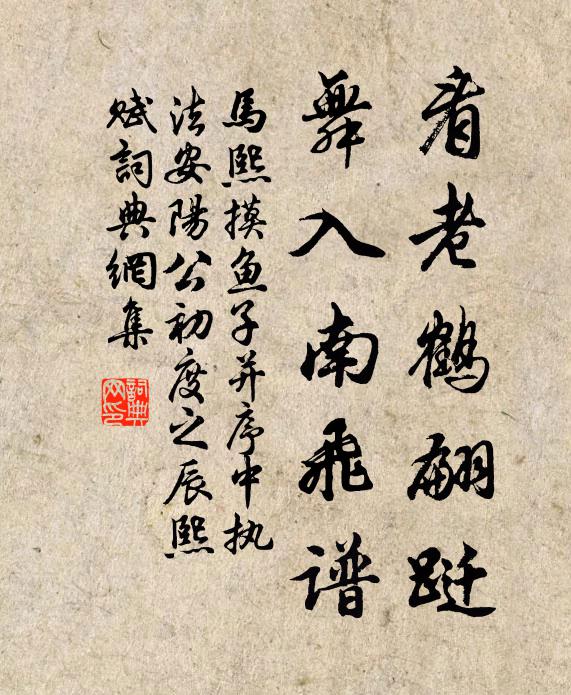 看老鹤翩跹
舞入南飛谱
馬熙摸鱼子并序中执
法安陽公初度之辰熙
赋詞典網集
詞典网印